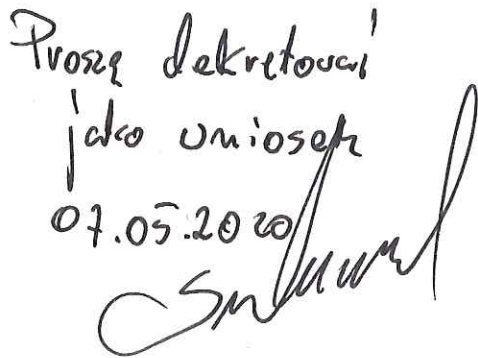 Proszę dekretować
jako wniosek
07.05.2020